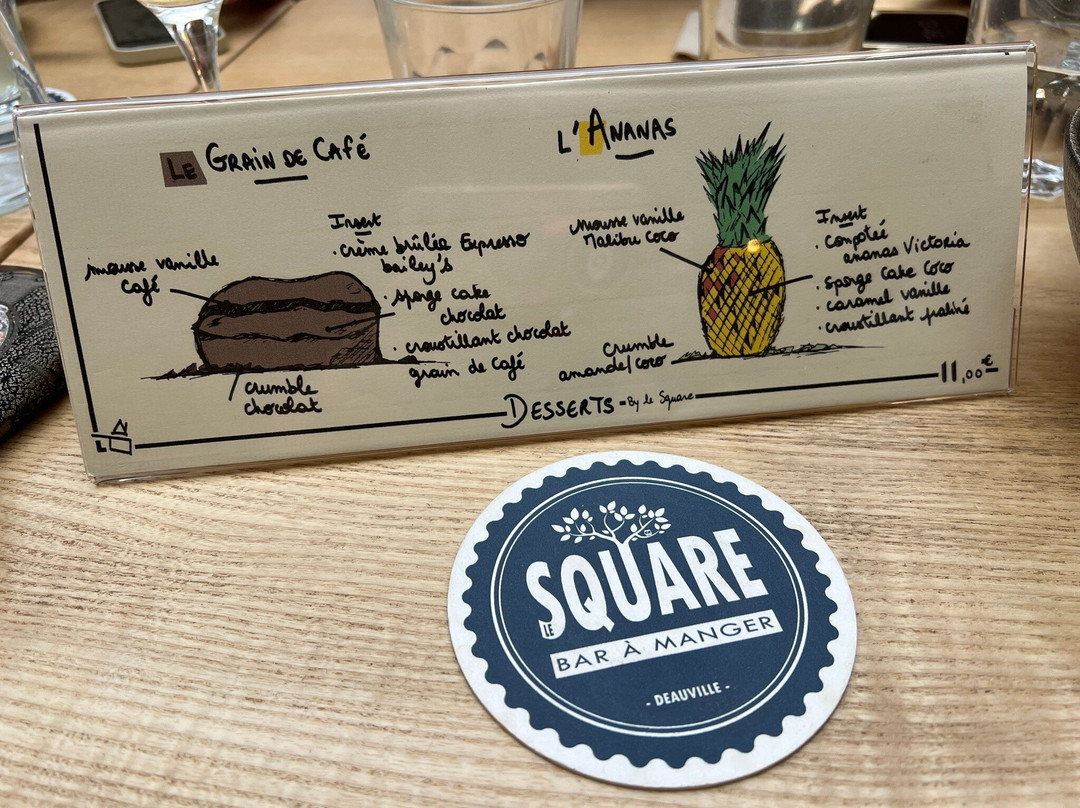 Le Grain de Café
mousse vanille
café
Insert
· crème brûlée Expresso
bailey's
· sponge cake
chocolat
· croustillant chocolat
grain de café
crumble
chocolat
L'Ananas
mousse vanille
Malibu coco
Insert
· compotée
ananas Victoria
· sponge cake coco
· caramel vanille
· croustillant praliné
crumble
amande/coco
11,00€
Desserts - By le Square
LE SQUARE
BAR À MANGER
- DEAUVILLE -